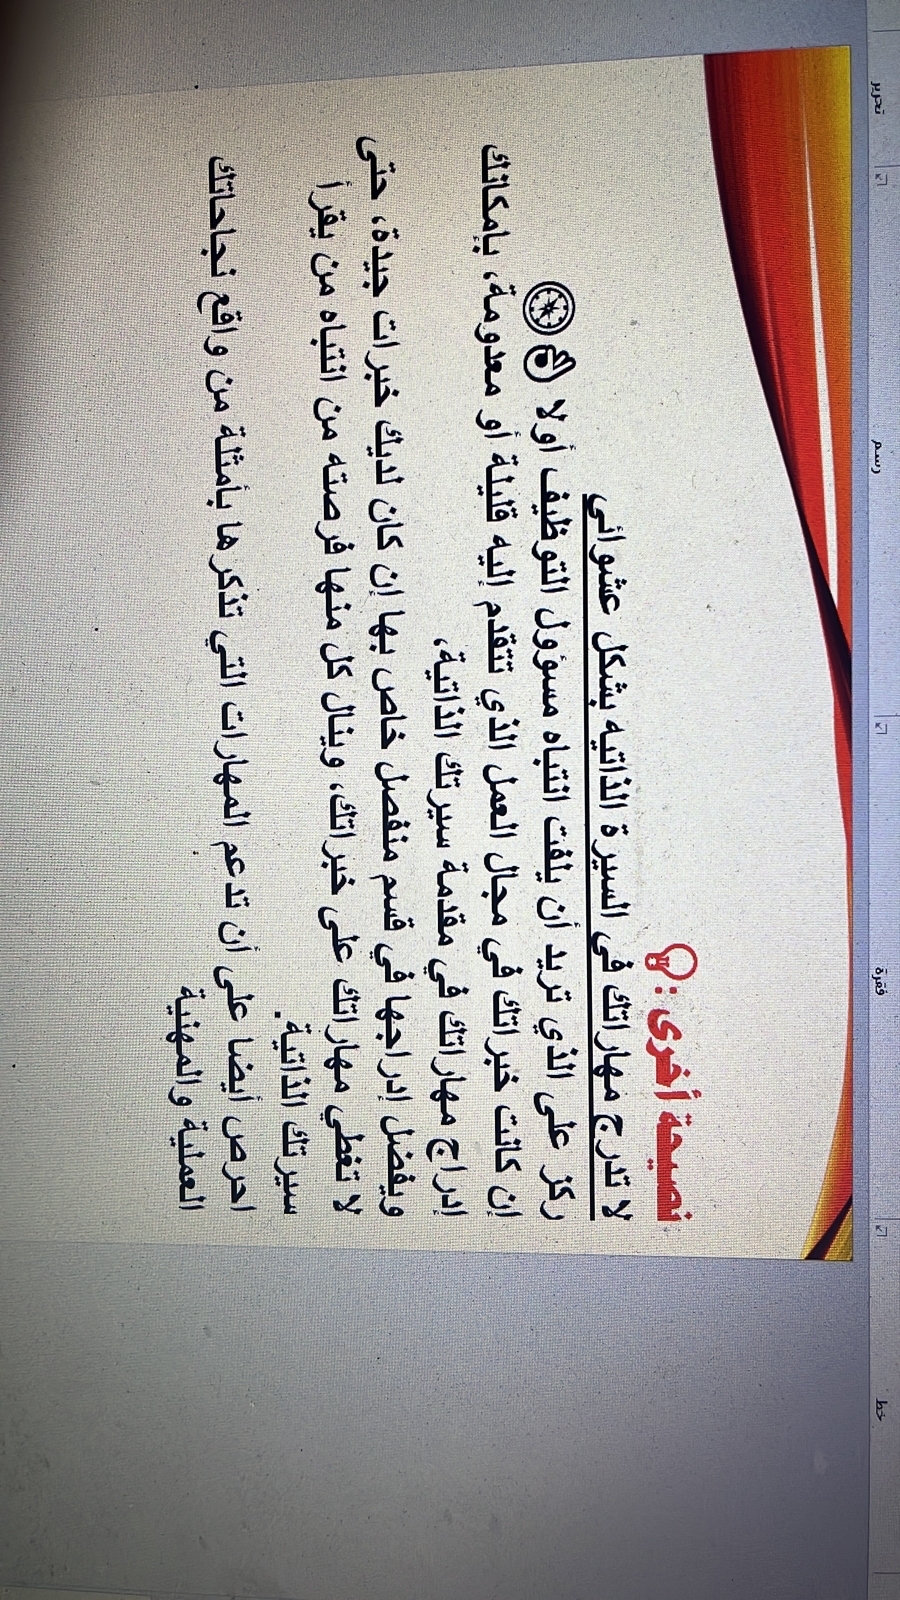 تحرير
رسم
فقرة
خط
نصيحة أخرى :
لا تدرج مهاراتك في السيرة الذاتيه بشكل عشوائي
ركز على الذي تريد أن يلفت انتباه مسؤول التوظيف أولا
إن كانت خبراتك في مجال العمل الذي تتقدم إليه قليلة أو معدومة، بإمكانك
إدراج مهاراتك في مقدمة سيرتك الذاتية،
ويفضل إدراجها في قسم منفصل خاص بها إن كان لديك خبرات جيدة، حتى
لا تغطي مهاراتك على خبراتك، وينال كل منها فرصته من انتباه من يقرأ
سيرتك الذاتية.
احرص أيضا على أن تدعم المهارات التي تذكرها بأمثلة من واقع نجاحاتك
العملية والمهنية